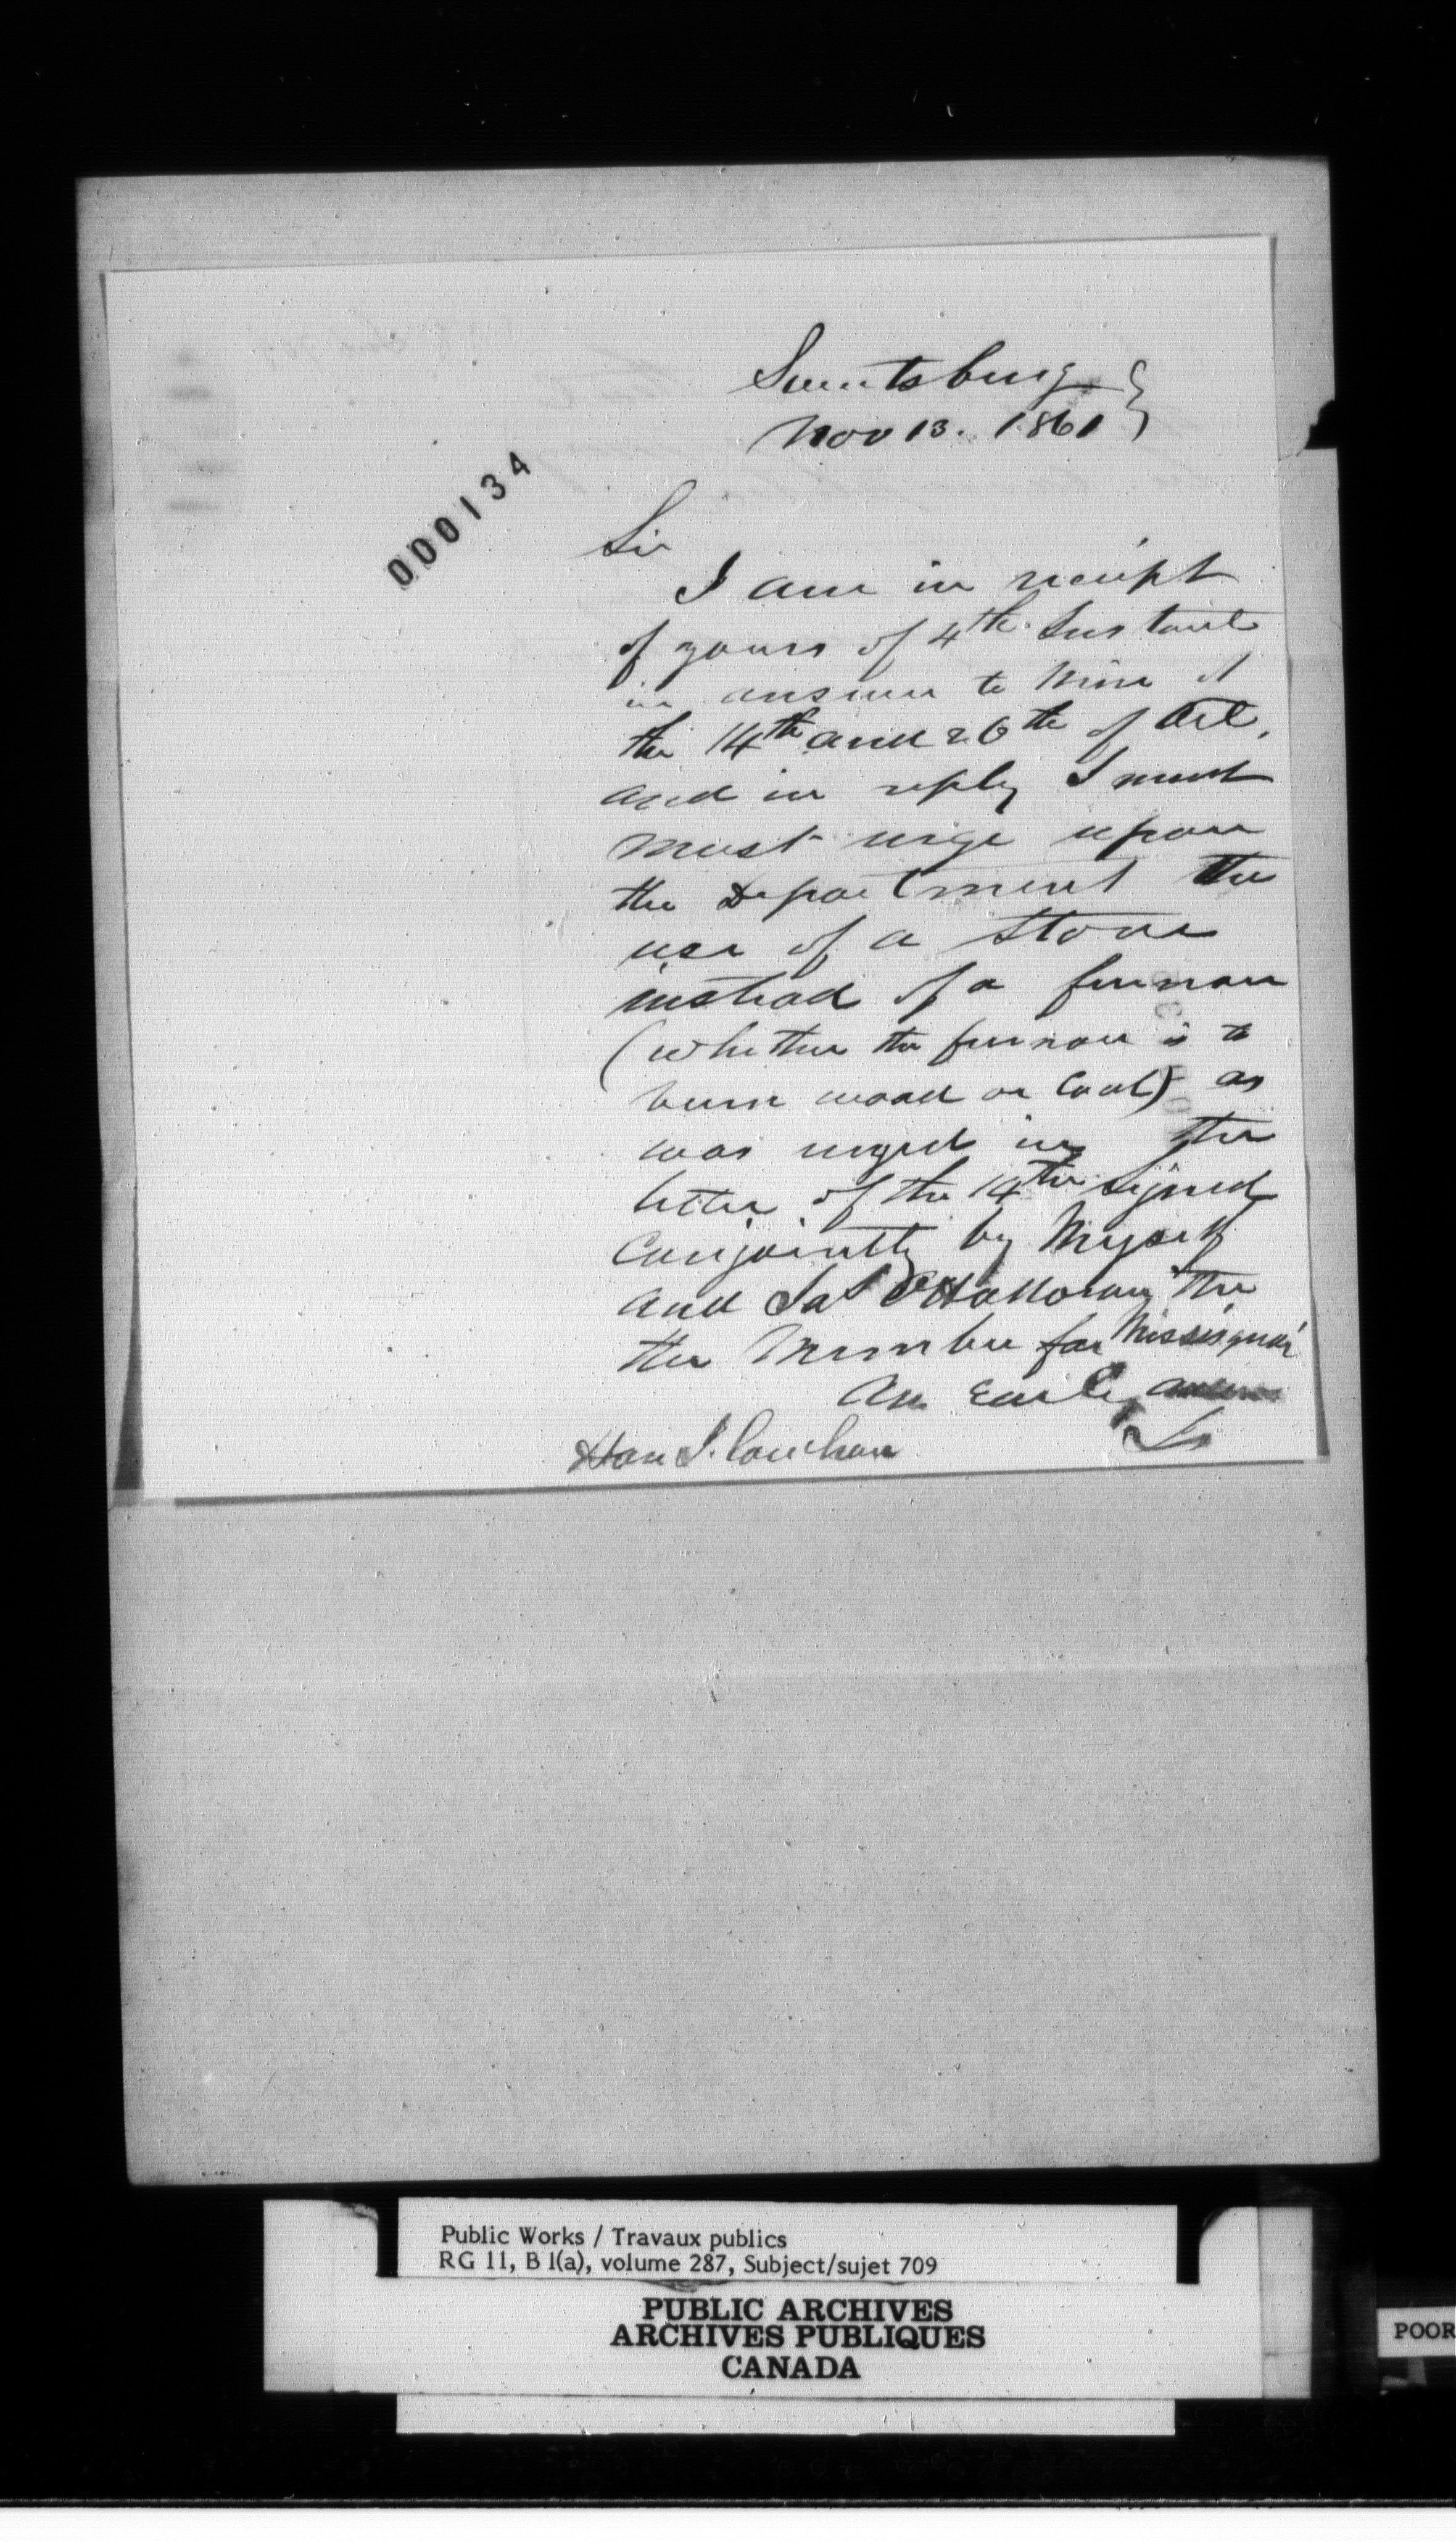 Sweetsburg
Nov 13. 1861
000134
Sir
I am in receipt
of yours of 4th Instant
in answer to mine of
the 14th and 26th of Oct,
and in reply I must
most urge upon
the Department the
use of a stove
instead of a furnace
(whether the furnace is to
burn wood or coal) as
was urged in the
letter of the 14th signed
conjointly by myself
and Jas O'Halloran the
the Member for Missisquoi
An early answer
Hon J. Cauchon
Public Works / Travaux publics
RG 11, B 1(a), volume 287, Subject/sujet 709
PUBLIC ARCHIVES
ARCHIVES PUBLIQUES
CANADA
POOR